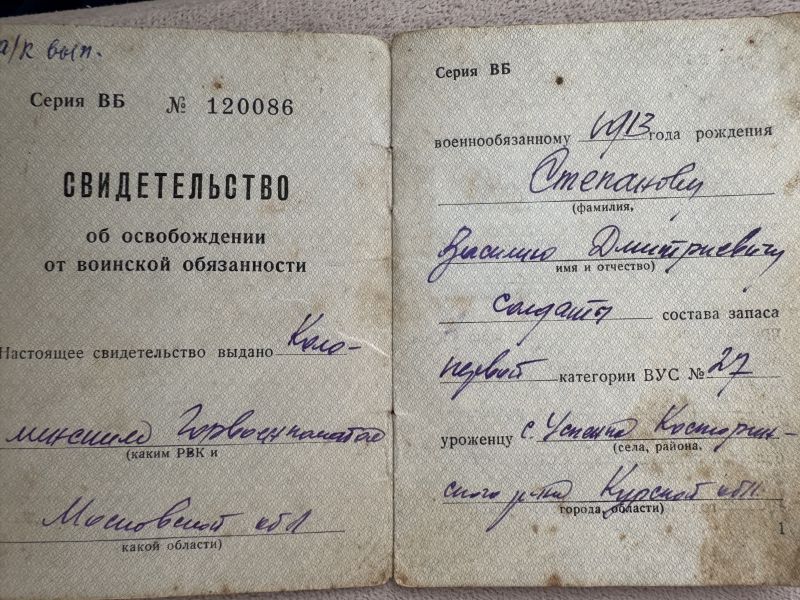 а/к вып.
Серия ВБ № 120086
СВИДЕТЕЛЬСТВО
об освобождении
от воинской обязанности
Настоящее свидетельство выдано Коло-
менским Горвоенкоматом
(каким РВК и
Московской обл
какой области)
Серия ВБ
военнообязанному 1913 года рождения
Степанову
(фамилия,
Василию Дмитриевичу
имя и отчество)
солдаты состава запаса
первой категории ВУС № 27
уроженцу с. Успенка
(села, района,
ского р-на Курской обл.
города, области)
1